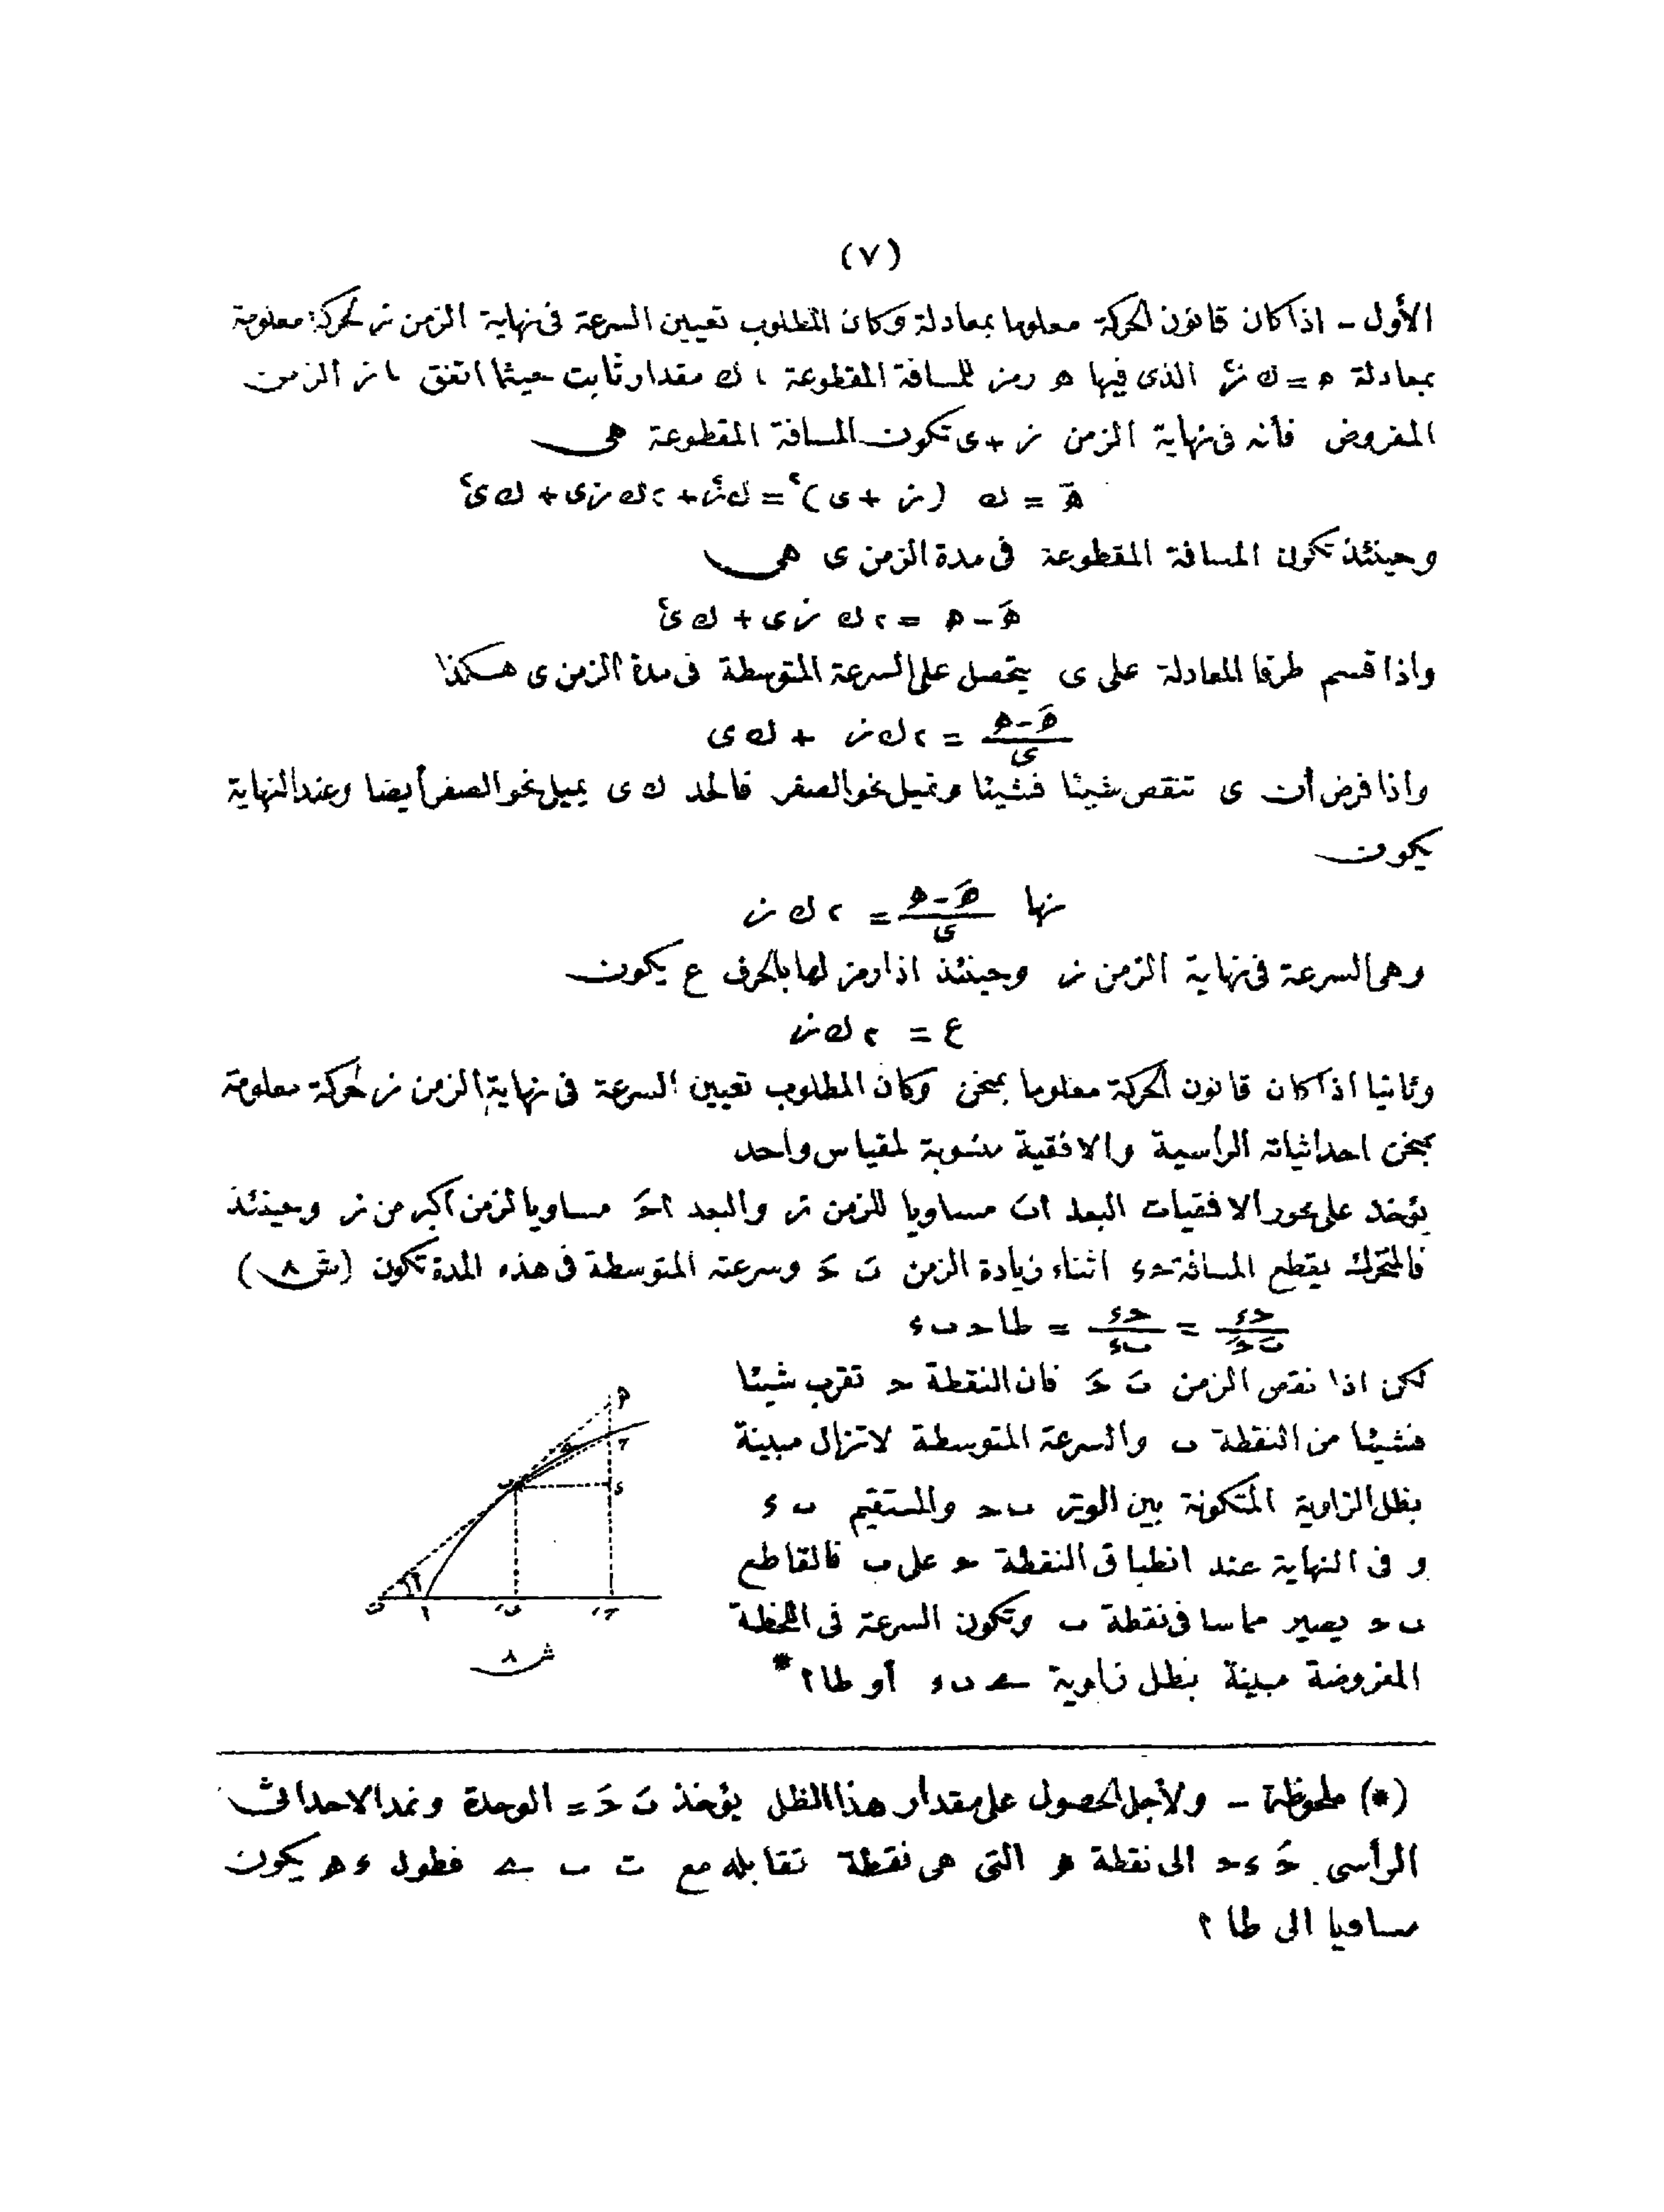 (٧)
الأول - اذا كان قانون الحركة معلوما بمعادلة وكان المطلوب تعيين السرعة فى نهاية الزمن ز لحركة معلومة
بمعادلة ه = ك ز٢ الذى فيها ه رمز للمسافة المقطوعة ، ك مقدار ثابت حيثما اتفق ، ز الزمن
المفروض فأنه فى نهاية الزمن ز + ى تكون المسافة المقطوعة هى
هَ = ك (ز + ى)٢ = ك ز٢ + ٢ ك ز ى + ك ى٢
وحينئذ تكون المسافة المقطوعة فى مدة الزمن ى هى
هَ - ه = ٢ ك ز ى + ك ى٢
واذا قسم طرفا المعادلة على ى يتحصل على السرعة المتوسطة فى مدة الزمن ى هكذا
هَ - ه / ى = ٢ ك ز + ك ى
واذا فرض أن ى تنقص شيئا فشيئا وتميل نحو الصفر فالحد ك ى يميل نحو الصفر أيضا وعند النهاية
يكون
نها هَ - ه / ى = ٢ ك ز
وهى السرعة فى نهاية الزمن ز وحينئذ اذا رمز لها بالحرف ع يكون
ع = ٢ ك ز
وثانيا اذا كان قانون الحركة معلوما بمنحن وكان المطلوب تعيين السرعة فى نهاية الزمن ز لحركة معلومة
بمنحن احداثياته الرأسية والافقية منسوبة لمقياس واحد
يؤخذ على محور الافقيات البعد ابَ مساويا للزمن ز والبعد احَ مساويا لزمن أكبر من ز وحينئذ
فالمتحرك يقطع المسافة حء اثناء زيادة الزمن بَ حَ وسرعته المتوسطة فى هذه المدة تكون (ش ٨)
حء / بَ حَ = حء / بء = طا حبء
لكن اذا نقص الزمن بَ حَ فان النقطة ح تقرب شيئا
فشيئا من النقطة ب والسرعة المتوسطة لاتزال مبينة
بظل الزاوية المتكونة بين الوتر بح والمستقيم ب ء
و فى النهاية عند انطباق النقطة ح على ب فالقاطع
ب ح يصير مماسا فى نقطة ب وتكون السرعة فى اللحظة
المفروضة مبينة بظل زاوية ے ب ء أو طا ٢ *
ش ٨
(*) ملحوظة - ولأجل الحصول على مقدار هذا الظل يؤخذ بَ حَ = الوحدة ونمد الاحداثى
الرأسى حَ ء ح الى نقطة ه التى هى نقطة تقابله مع ت ب ے فطول ء ه يكون
مساويا الى طا ٢